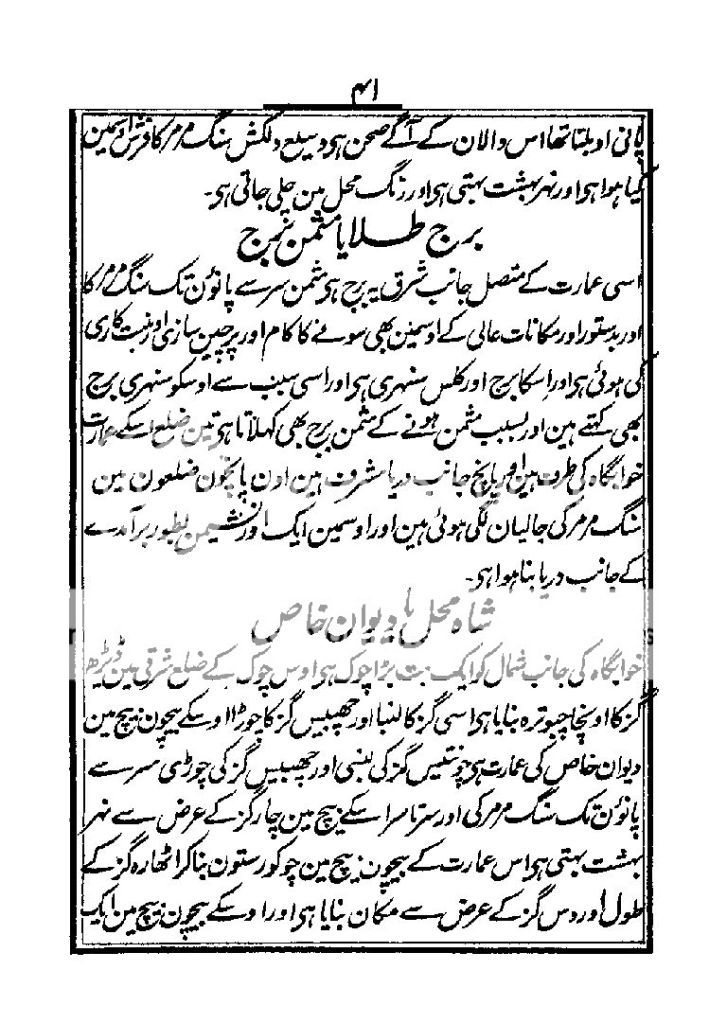 ۴۱
پانی اوبلتا تھا اس دالان کے آگے صحن ہی وسیع دلکش سنگ مرمر کا فرش اسمین
کیا ہوا ہی اور نہر بہشت بہتی ہی اور رنگ محل مین چلی جاتی ہی۔
برج طلا یا مثمن برج
اسی عمارت کے متصل جانب شرق یہ برج ہی مثمن سر سے پانؤن تک سنگ مرمر کا
اور بدستور اور مکانات عالی کے اوسمین بھی سونے کا کام اور پرچین سازی اور منبت کاری
کی ہوئی ہی اور اسکا برج اور کلس سنہری ہی اور اسی سبب سے اوسکو سنہری برج
بھی کہتے ہین اور بسبب مثمن ہونے کے مثمن برج بھی کہلاتا ہی تین ضلع اسکے عمارت
خوابگاہ کی طرف ہین اور پانچ جانب دریا مشرف ہین اون پانچون ضلعون مین
سنگ مرمر کی جالیان لگی ہوئی ہین اور اوسمین ایک اور نشیمن بطور برآمدے
کے جانب دریا بنا ہوا ہی۔
شاہ محل یا دیوان خاص
خوابگاہ کی جانب شمال کو ایک بہت بڑا چوک ہی اوس چوک کے ضلع شرقی مین ڈیڑھ
گز کا اونچا چبوترہ بنایا ہی اسی گز کا لنبا اور چھبیس گز کا چوڑا اوسکے بیچون بیچ مین
دیوان خاص کی عمارت ہی چونتیس گز کی لنبی اور چھبیس گز کی چوڑی سر سے
پانؤن تک سنگ مرمر کی اور سرتاسر اسکے بیچ مین چار گز کے عرض سے نہر
بہشت بہتی ہی اس عمارت کے بیچون بیچ مین چوکور ستون بناکر اٹھارہ گز کے
طول اور دس گز کے عرض سے مکان بنایا ہی اور اوسکے بیچون بیچ مین ایک